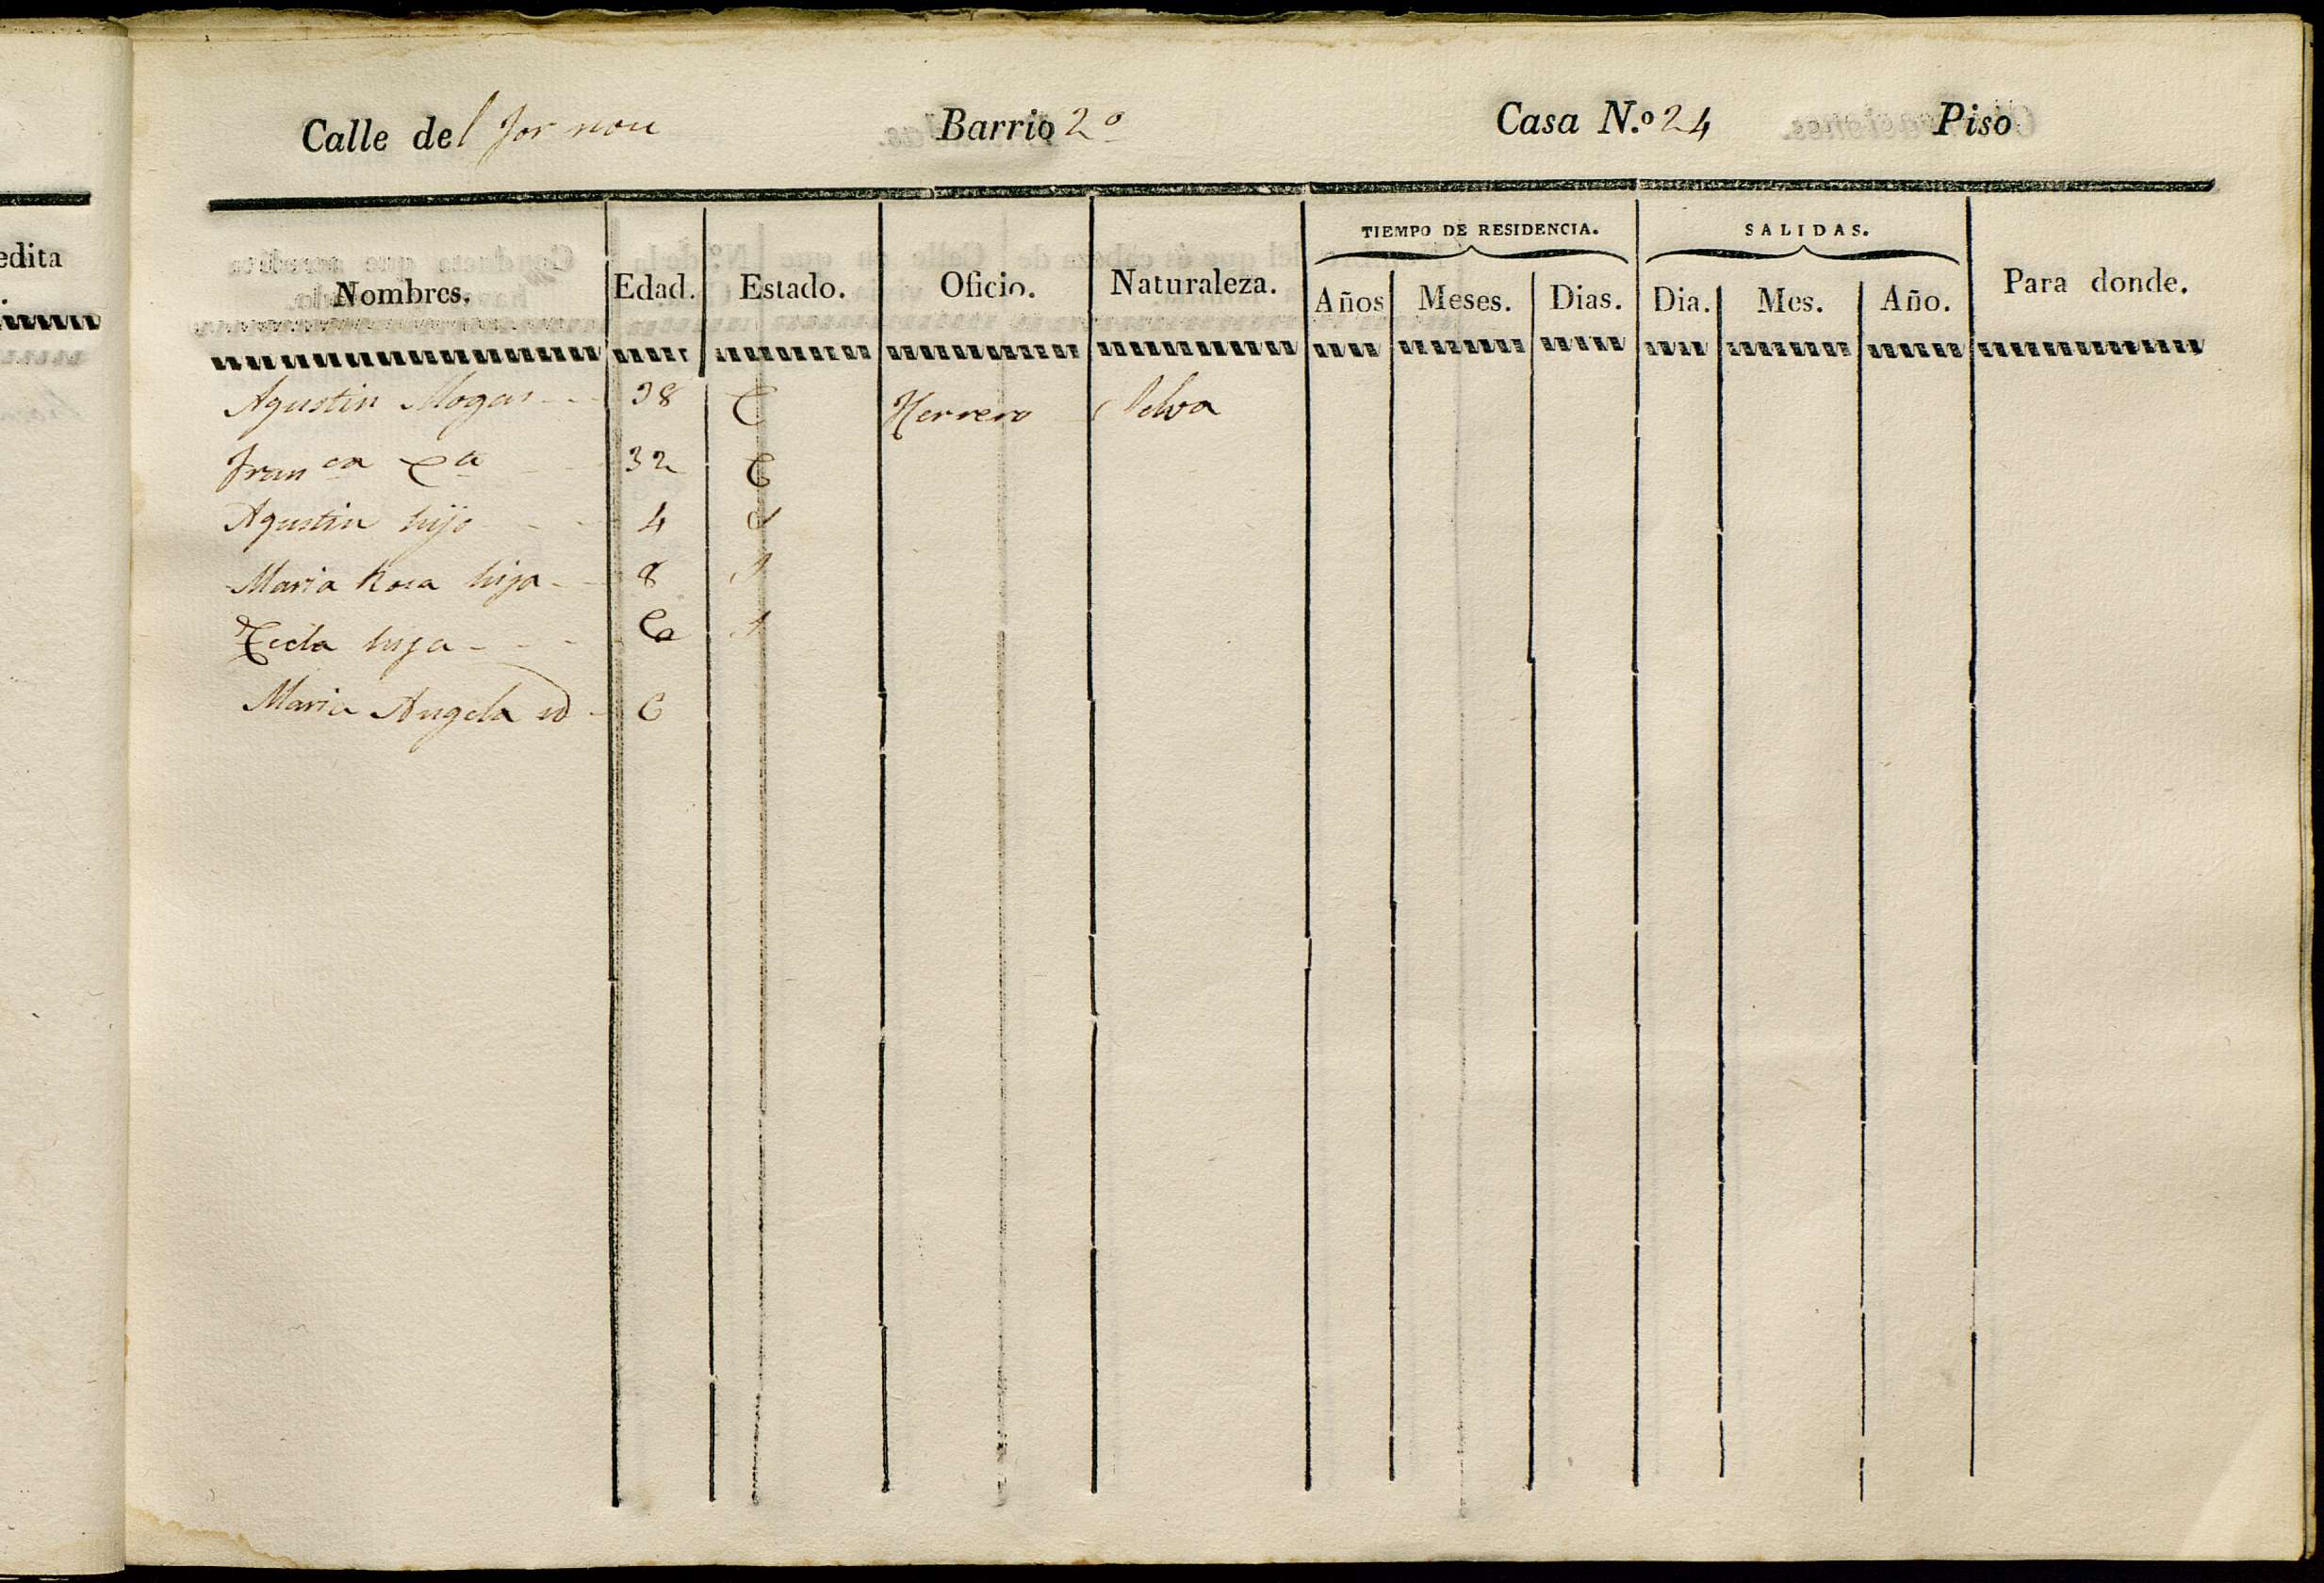 edita
Calle del for nou Barrio 2º Casa N.º 24 Piso
TIEMPO DE RESIDENCIA. SALIDAS.
Nombres. Edad. Estado. Oficio. Naturaleza. Años Meses. Dias. Dia. Mes. Año. Para donde.
Agustin Mogas 38 C Herrero Selva
Franca 32 C
Agustin hijo 4 S
Maria Rosa hija 8 S
Tecla hija S
Maria Angela id